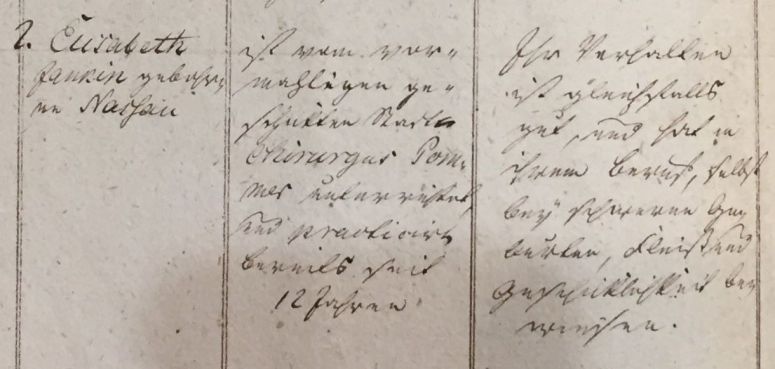 2. Elisabeth
Jankin gebohr-
ne Nassau
ist vom vor-
mahligen ge-
schickten Stadt
Chirurgus Pom-
mer unterrichtet,
und practicirt
bereits seit
12 Jahren
Ihr Verhalten
ist gleichfalls
gut, und hat in
ihrem Beruf, selbst
bey schweren Ge-
burten, Fleiß und
Geschicklichkeit be-
wiesen.